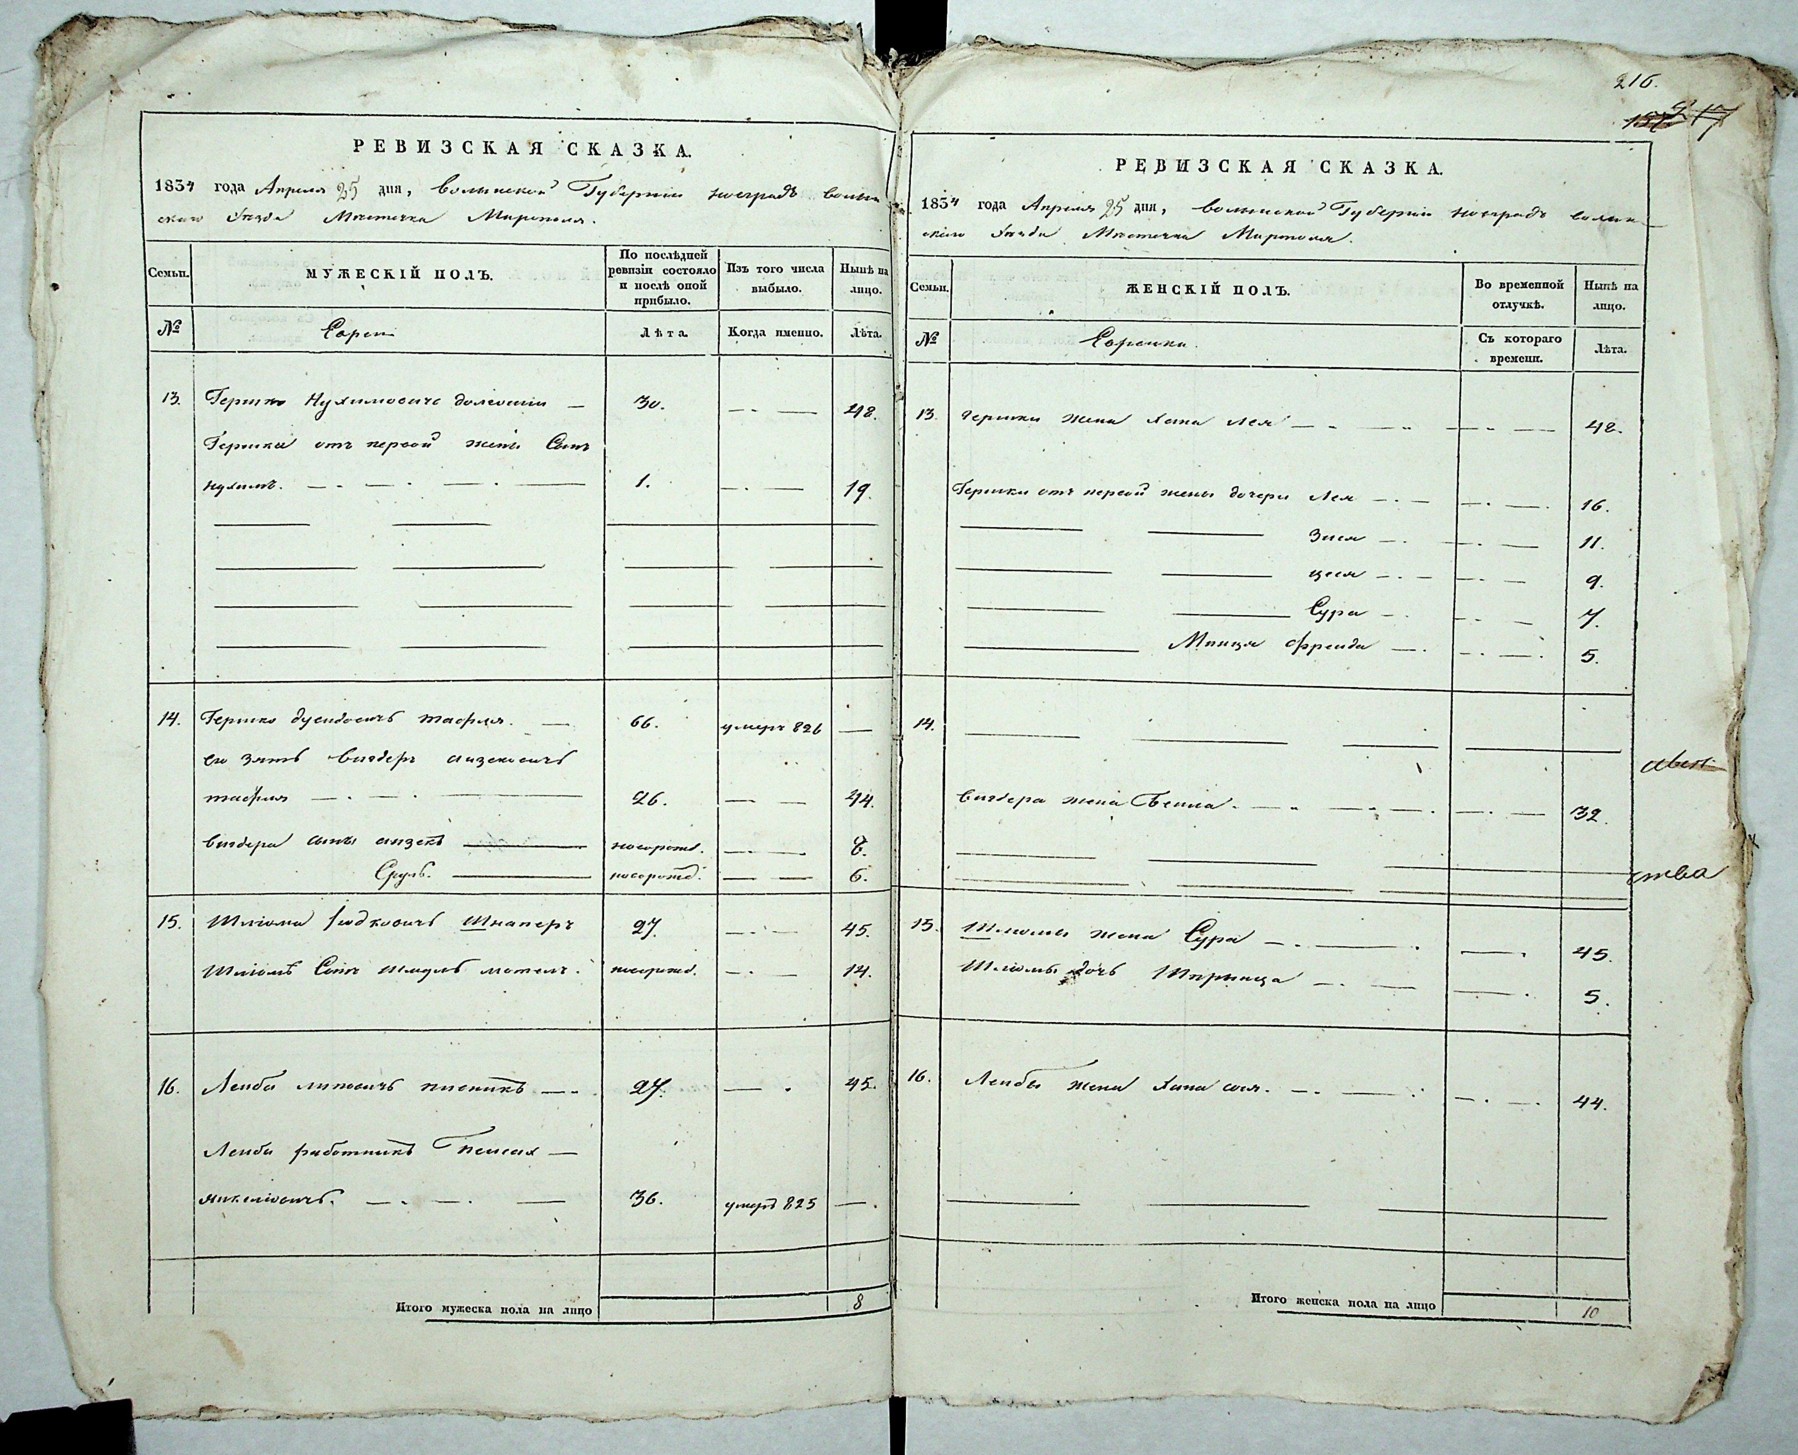 216.
РЕВИЗСКАЯ СКАЗКА.
1834 года Апреля 25 дня, Волынской Губернии Новградъ Волын
скаго Уѣзда Мѣстечка Мирополя.
Семьи.
МУЖЕСКІЙ ПОЛЪ.
По послѣдней ревизіи состояло и послѣ оной прибыло.
Изъ того числа выбыло.
Нынѣ на лицо.
№
Евреи
Лѣта.
Когда именно.
Лѣта.
13. Гершко Нухимовичъ 30. 48.
Гершка отъ первой жены Сынъ
Нухимъ. 1. 19.
14. Гершко Дувидовичъ 66. умеръ 826
его зять Вигдеръ Айзековичъ
26. 44.
Вигдера сынъ Айзекъ новорожд. 8.
Сруль. новорожд. 6.
15. Шліома Шнаперъ 27. 45.
Шліомы Сынъ Шмуль Мотель. новорожд. 14.
16. Лейба 27. 45.
Лейбы работникъ Пейсах
Янкелiовичъ. 36. умеръ 825
Итого мужеска пола на лицо 8
РЕВИЗСКАЯ СКАЗКА.
1834 года Апреля 25 дня, Волынской Губернии Новградъ Волын
скаго Уѣзда Мѣстечка Мирополя.
Семьи.
ЖЕНСКІЙ ПОЛЪ.
Во временной отлучкѣ.
Нынѣ на лицо.
№
Еврейки.
Съ котораго времени.
Лѣта.
13. Гершки жена Хана Лея 48.
Гершки отъ первой жены дочери Лея 16.
Зися 11.
Цея 9.
Сура 7.
Фрейда 5.
14.
Вигдера жена Бейла. 32.
15. Шліомы жена Сура 45.
Шліомы дочь Шпринца 5.
16. Лейбы жена Хана 44.
ства
Итого женска пола на лицо 10